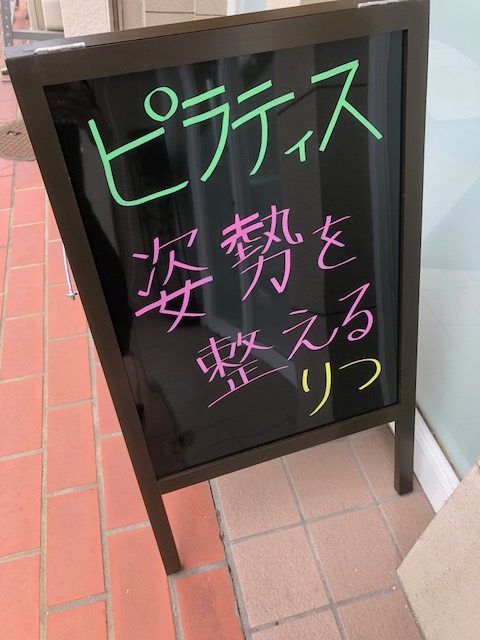 ピラティス
姿勢を
整える
りつ